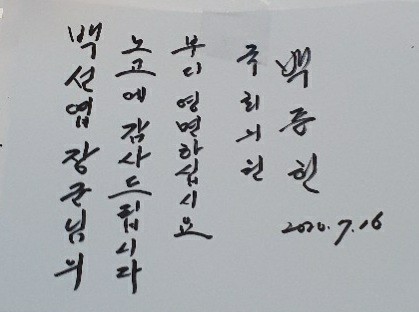 백선엽 장군님의
노고에 감사드립시다
부디 영면하십시요
국회의원
백종헌
2020.7.16